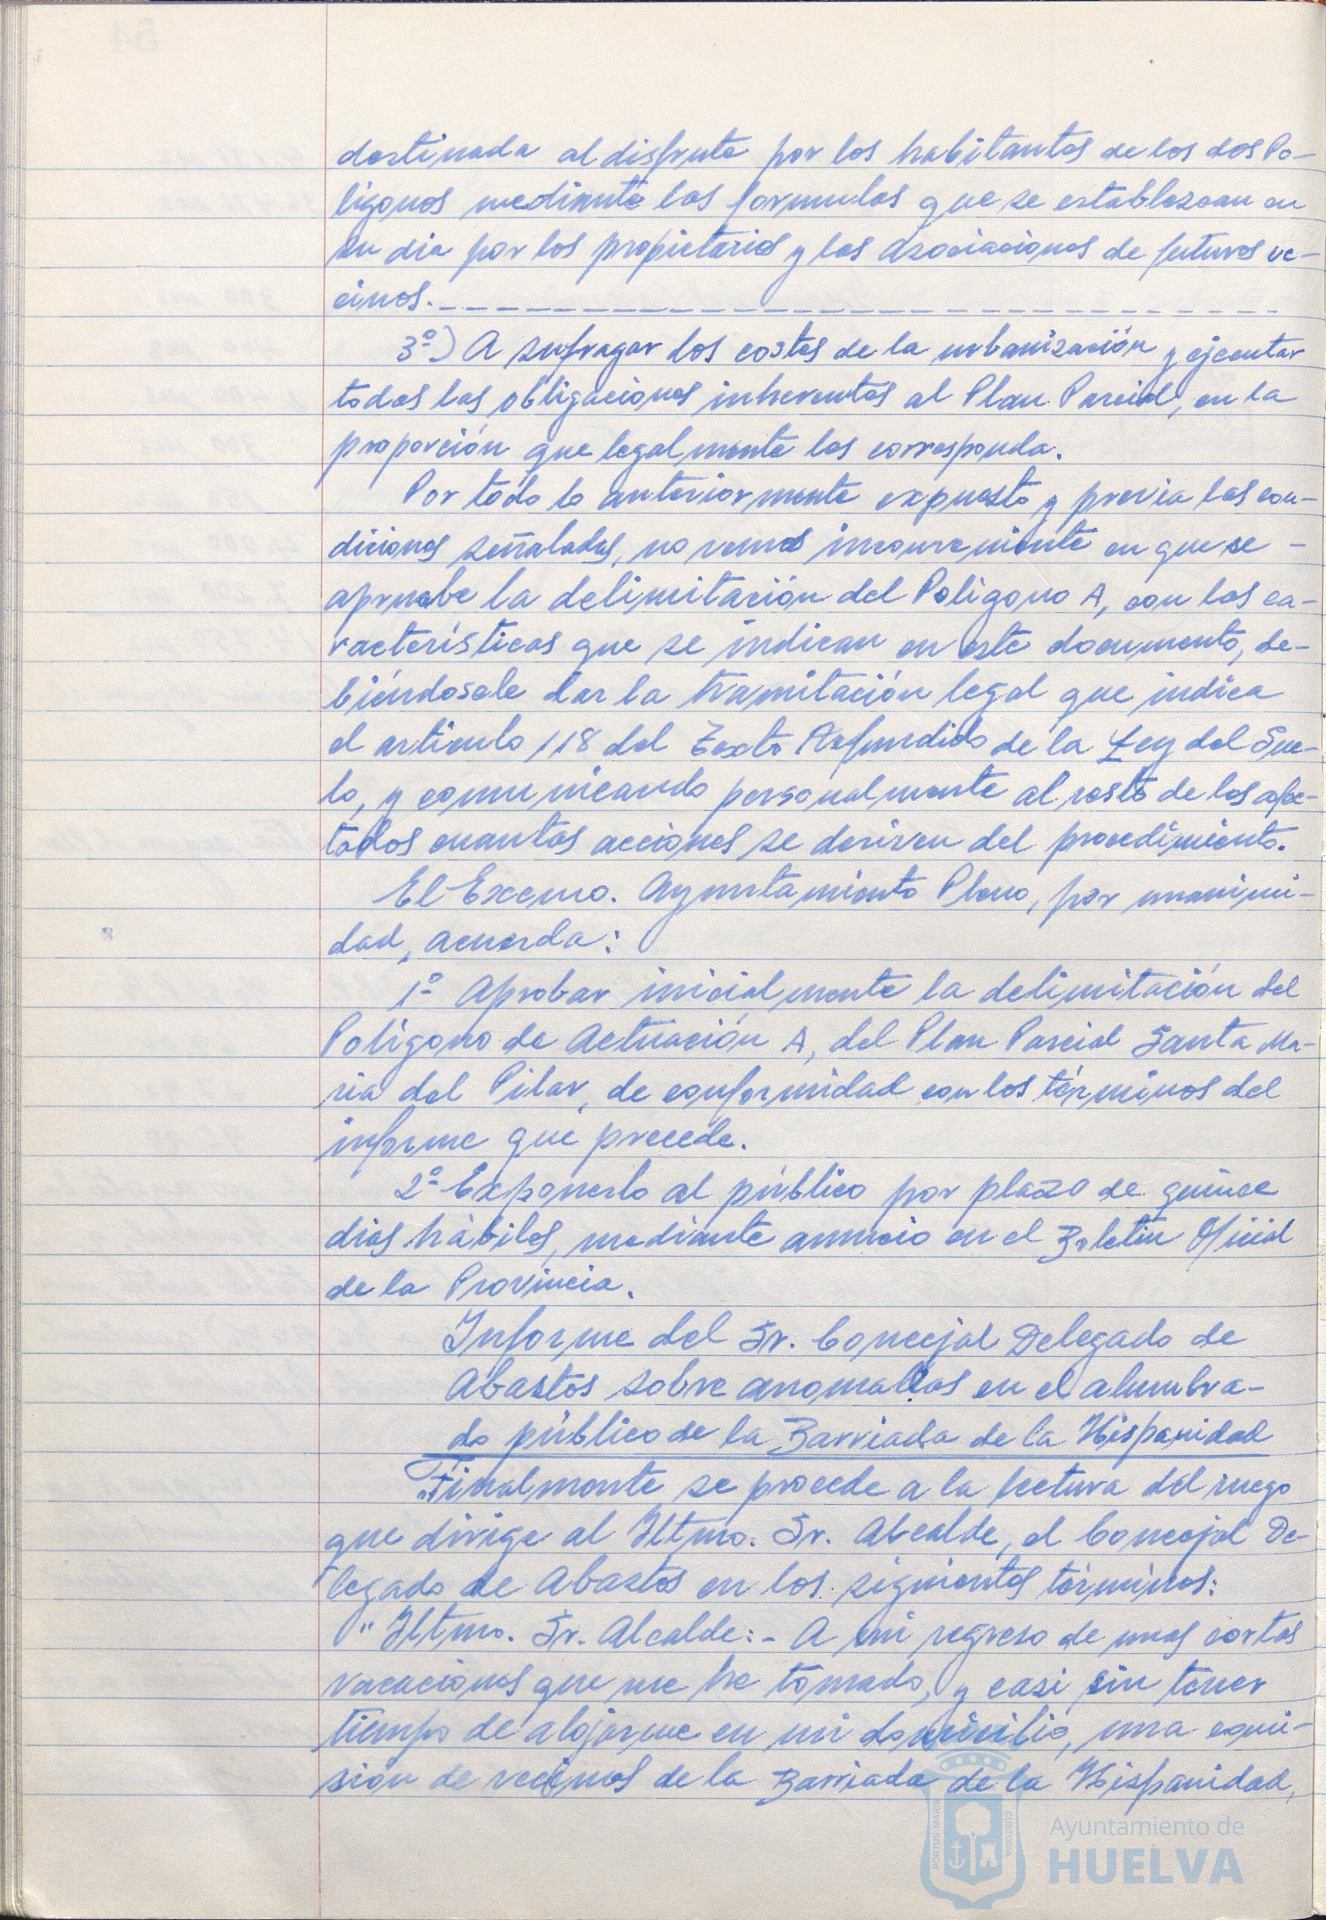 destinada al disfrute por los habitantes de los dos Po-
lígonos mediante las formulas que se establezcan en
su dia por los propietarios y las asociaciones de futuros ve-
cinos.
3º) A sufragar los costes de la urbanización y ejecutar
todas las obligaciones inherentes al Plan Parcial, en la
proporción que legalmente les corresponda.
Por todo lo anteriormente expuesto y previa las con-
diciones señaladas, no vemos inconveniente en que se -
apruebe la delimitación del Polígono A, con las ca-
racterísticas que se indican en este documento, de-
biéndosele dar la tramitación legal que indica
el artículo 118 del Texto Refundido de la Ley del Sue-
lo, y comunicando personalmente al resto de los afec-
tados cuantas acciones se deriven del procedimiento.
El Excmo. Ayuntamiento Pleno, por unanimi-
dad, acuerda:
1º Aprobar inicialmente la delimitación del
Polígono de Actuación A, del Plan Parcial Santa Ma-
ria del Pilar, de conformidad con los términos del
informe que precede.
2º Exponerlo al público por plazo de quince
dias hábiles, mediante anuncio en el Boletin Oficial
de la Provincia.
Informe del Sr. Concejal Delegado de
Abastos sobre anomalías en el alumbra-
do público de la Barriada de la Hispanidad
Finalmente se procede a la lectura del ruego
que dirige al Iltmo. Sr. Alcalde, el Concejal De-
legado de Abastos en los siguientes términos:
"Iltmo. Sr. Alcalde:- A mi regreso de unas cortas
vacaciones que me he tomado, y casi sin tener
tiempo de alojarme en mi domicilio, una comi-
sión de vecinos de la Barriada de la Hispanidad,
PORTUS MARIS
CUSTODIA
Ayuntamiento de
HUELVA